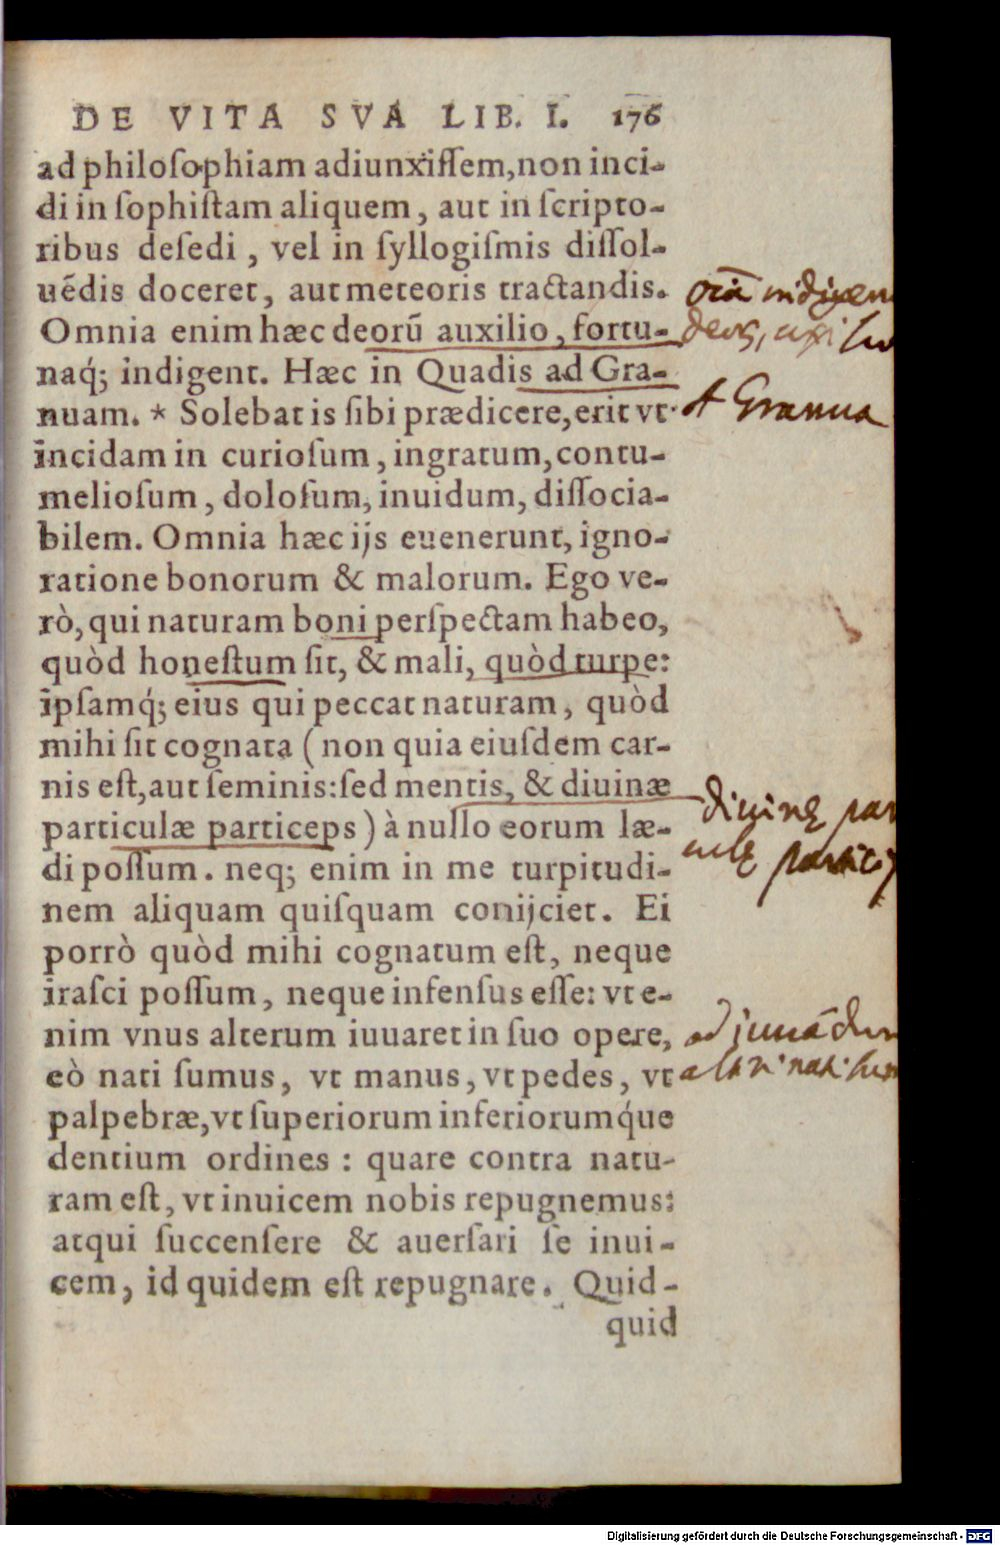 DE VITA SVA LIB. I. 176
ad philoſophiam adiunxiſſem, non inci-
di in ſophiſtam aliquem, aut in ſcripto-
ribus deſedi, vel in ſyllogiſmis diſſol-
uẽdis doceret, aut meteoris tractandis.
Omnia enim hæc deorũ auxilio, fortu-
naq́; indigent. Hæc in Quadis ad Gra-
nuam. * Solebat is ſibi prædicere, erit vt
incidam in curioſum, ingratum, contu-
melioſum, doloſum, inuidum, diſſocia-
bilem. Omnia hæc ijs euenerunt, igno-
ratione bonorum & malorum. Ego ve-
rò, qui naturam boni perſpectam habeo,
quòd honeſtum ſit, & mali, quòd turpe:
ipſamq́; eius qui peccat naturam, quòd
mihi ſit cognata (non quia eiuſdem car-
nis eſt, aut ſeminis: ſed mentis, & diuinæ
particulæ particeps) à nullo eorum læ-
di poſſum. neq; enim in me turpitudi-
nem aliquam quiſquam conijciet. Ei
porrò quòd mihi cognatum eſt, neque
iraſci poſſum, neque infenſus eſſe: vt e-
nim vnus alterum iuuaret in ſuo opere,
eò nati ſumus, vt manus, vt pedes, vt
palpebræ, vt ſuperiorum inferiorumq́ue
dentium ordines : quare contra natu-
ram eſt, vt inuicem nobis repugnemus:
atqui ſuccenſere & auerſari ſe inui-
cem, id quidem eſt repugnare. Quid-
quid
oı̃a indigen
deor,
A Granua
diuinę par
culę partic
ad iuuãdum
alteri nati sum
Digitalisierung gefördert durch die Deutsche Forschungsgemeinschaft - DFG